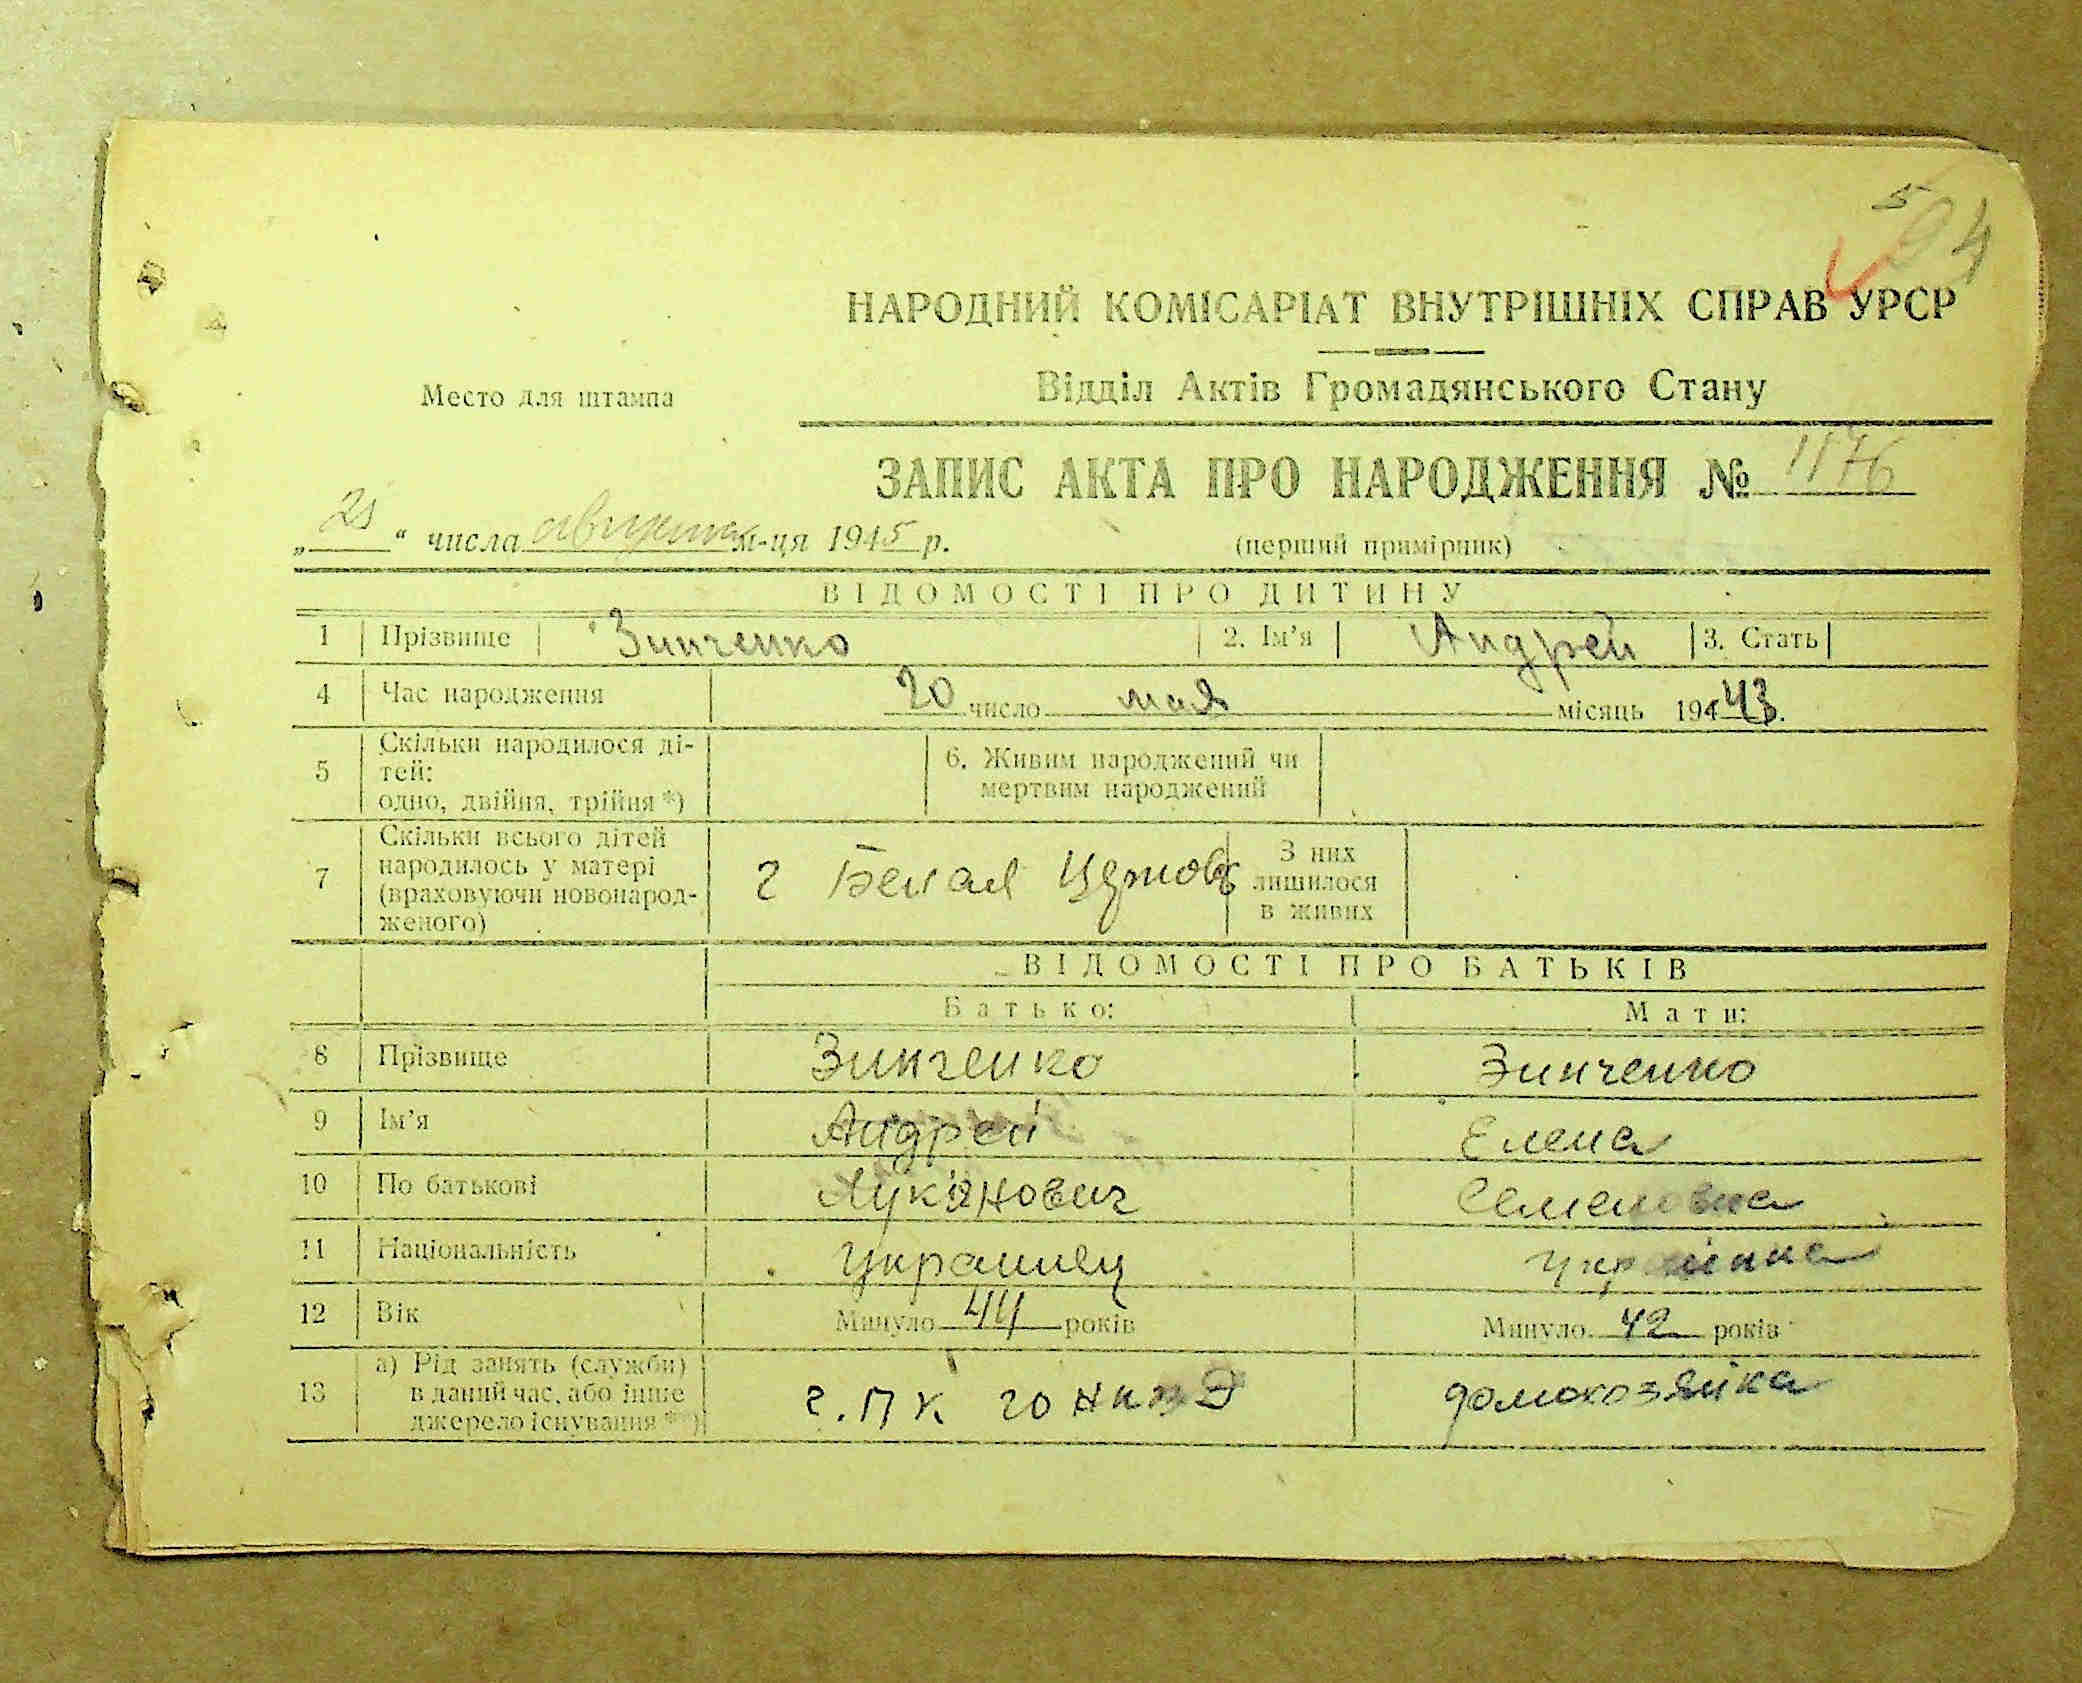 НАРОДНИЙ КОМІСАРІАТ ВНУТРІШНІХ СПРАВ УРСР
Место для штампа
Відділ Актів Громадянського Стану
ЗАПИС АКТА ПРО НАРОДЖЕННЯ № 1176
„ “ числа августа м-ця 1945 р.
(перший примірник)
ВІДОМОСТІ ПРО ДИТИНУ
1 Прізвище Зинченко 2. Ім’я Андрей 3. Стать
4 Час народження 20 число мая місяць 1943.
5 Скільки народилося ді-
тей:
одно, двійня, трійня *)
6. Живим народжений чи
мертвим народжений
7 Скільки всього дітей
народилось у матері
(враховуючи новонарод-
женого)
г Белая Церковь
З них
лишилося
в живих
ВІДОМОСТІ ПРО БАТЬКІВ
Батько: Мати:
8 Прізвище Зинченко Зинченко
9 Ім’я Андрей Елена
10 По батькові Лукянович Семеновна
11 Національність Украинец
12 Вік Минуло 44 років Минуло 42 років
13 а) Рід занять (служби)
в даний час, або інше
джерело існування **)
г. П К домохозяйка